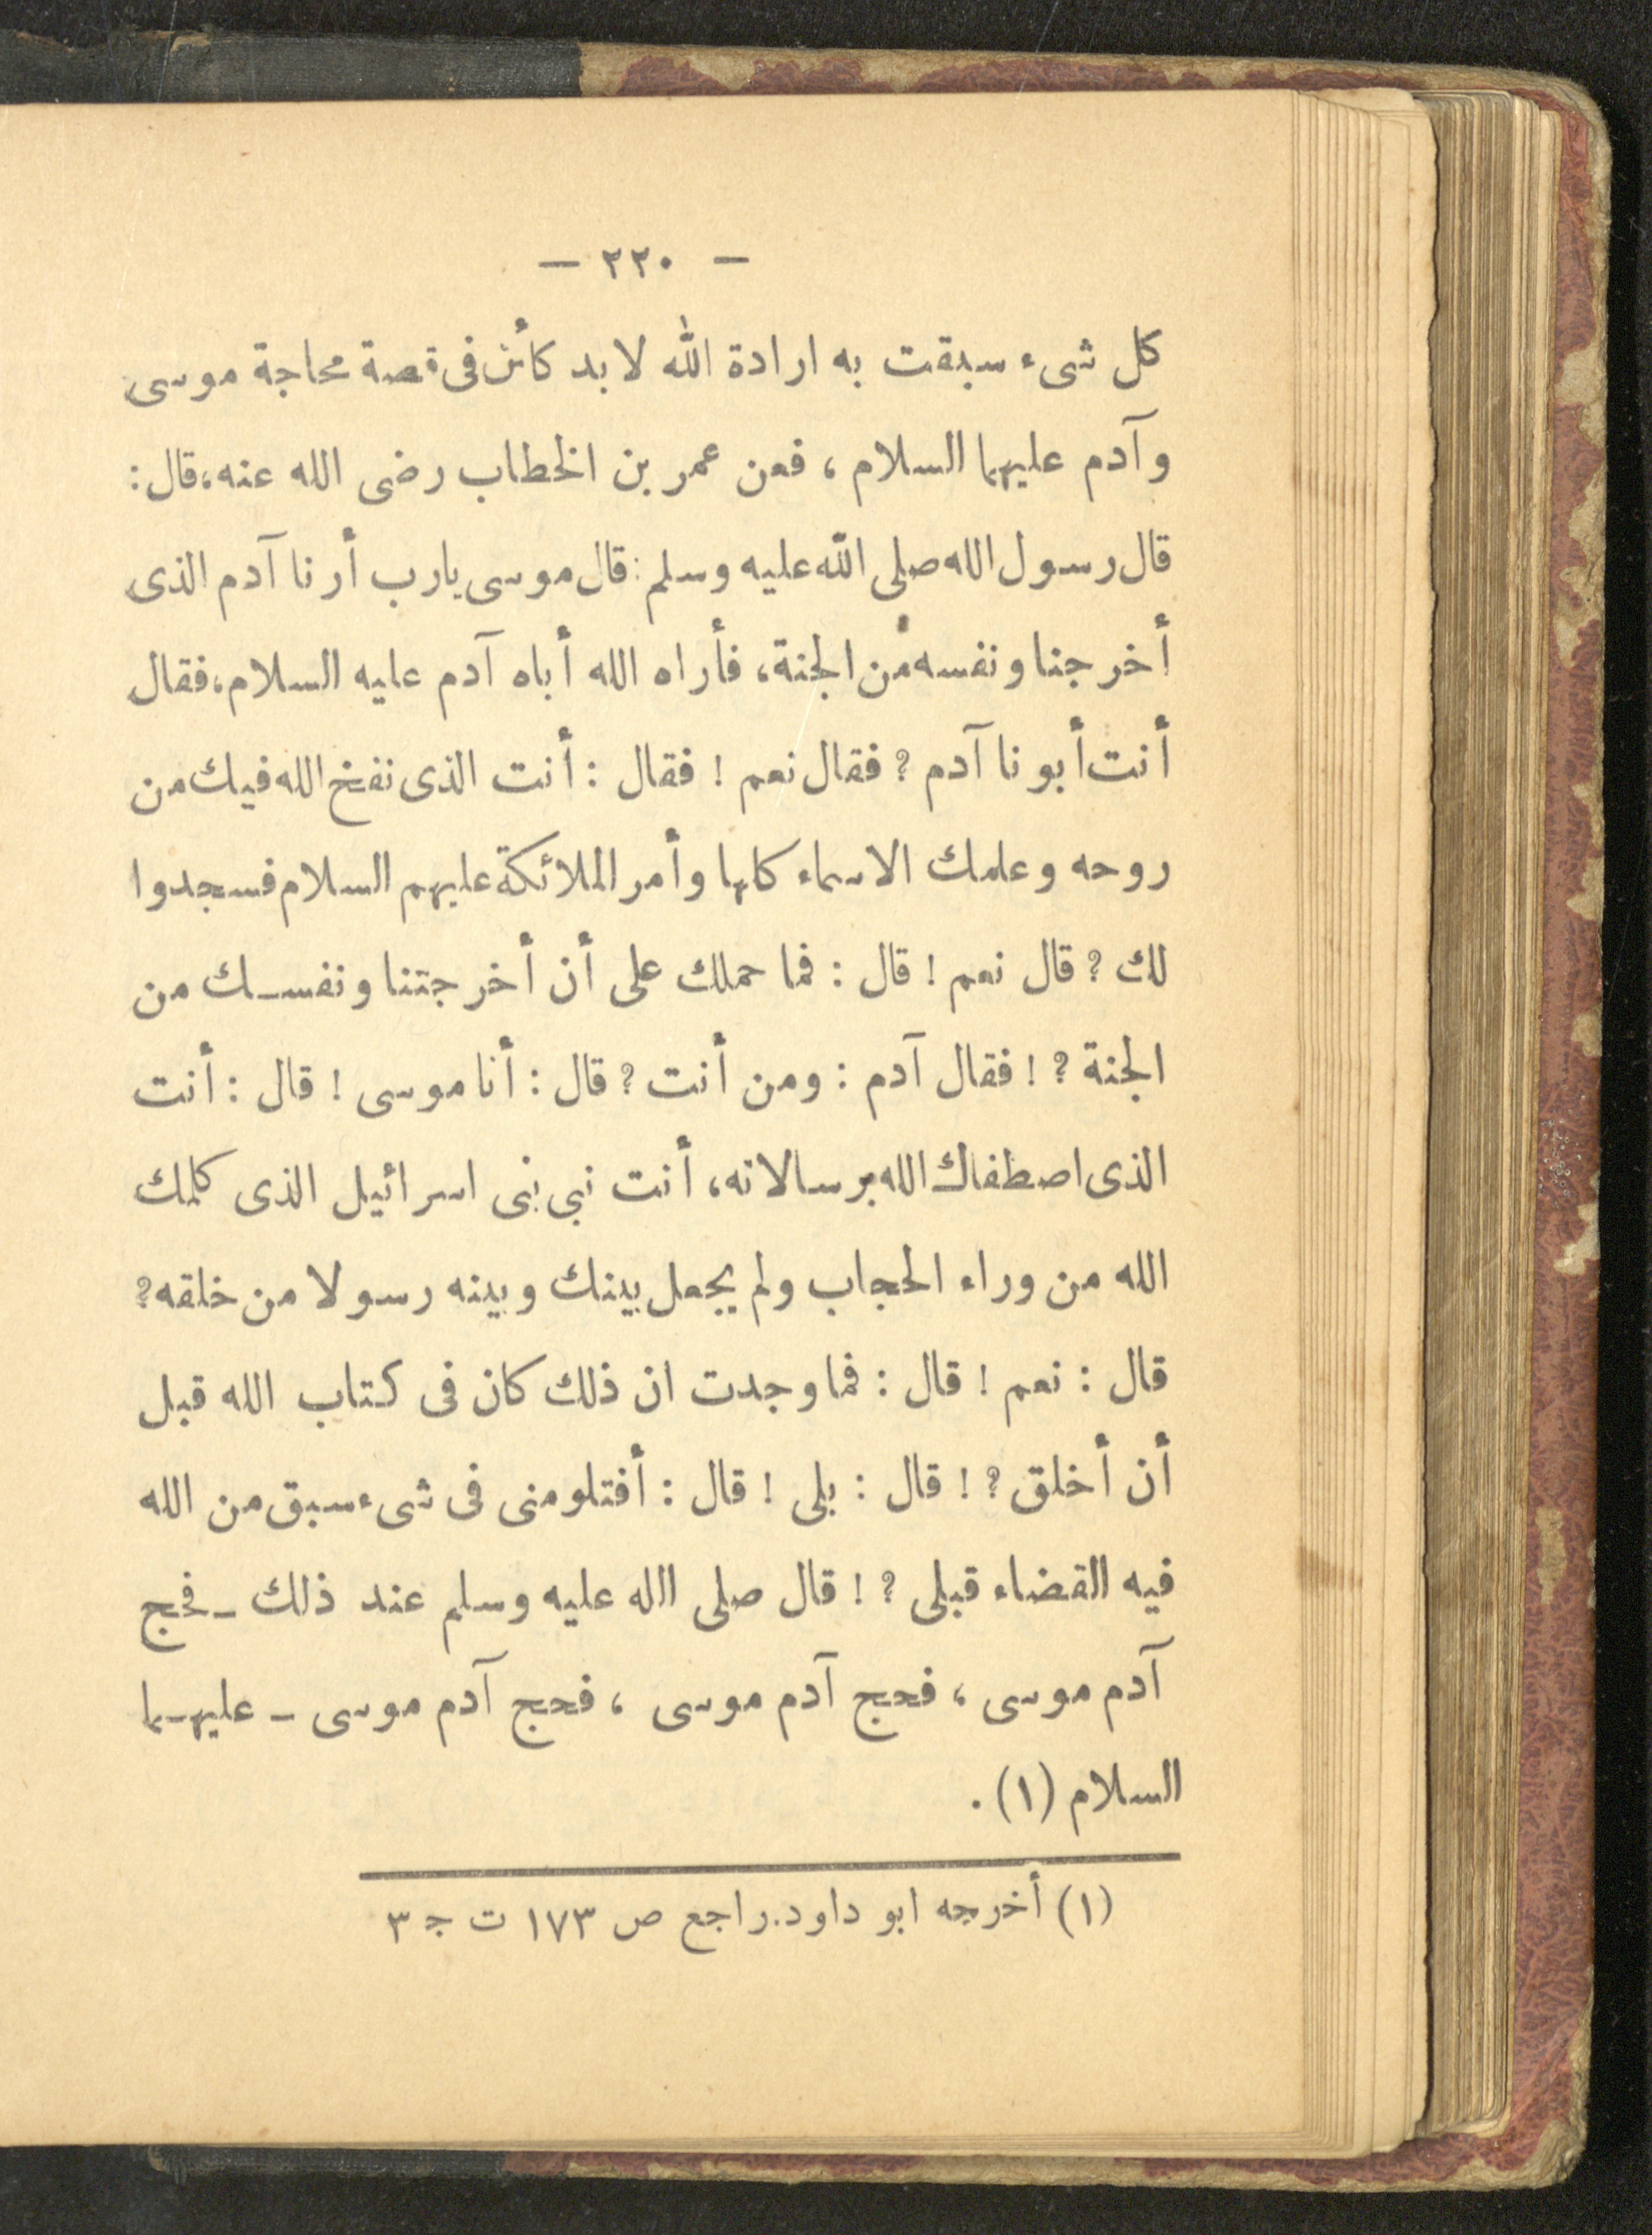 — ٢٢٠ —
كل شىء سبقت به ارادة الله لا بد كائن فى قصة محاجة موسى
وآدم عليهما السلام ، فعن عمر بن الخطاب رضى الله عنه، قال :
قال رسول الله صلى الله عليه وسلم : قال موسى يارب أرنا آدم الذى
أخرجنا ونفسه من الجنة، فأراه الله أباه آدم عليه السلام، فقال
أنت أبونا آدم ؟ فقال نعم ! فقال : أنت الذى نفخ الله فيك من
روحه وعلمك الاسماء كلها وأمر الملائكة عليهم السلام فسجدوا
لك ؟ قال نعم ! قال : فما حملك على أن أخرجتنا ونفسك من
الجنة ؟ ! فقال آدم : ومن أنت ؟ قال : أنا موسى ! قال : أنت
الذى اصطفاك الله برسالاته، أنت نبى بنى اسرائيل الذى كلمك
الله من وراء الحجاب ولم يجعل بينك وبينه رسولا من خلقه ؟
قال : نعم ! قال : فما وجدت ان ذلك كان فى كتاب الله قبل
أن أخلق ؟ ! قال : بلى ! قال : أفتلومنى فى شىء سبق من الله
فيه القضاء قبلى ؟ ! قال صلى الله عليه وسلم عند ذلك ـ فحج
آدم موسى ، فحج آدم موسى ، فحج آدم موسى ـ عليهما
السلام (١) .
(١) أخرجه ابو داود. راجع ص ١٧٣ ت ج ٣